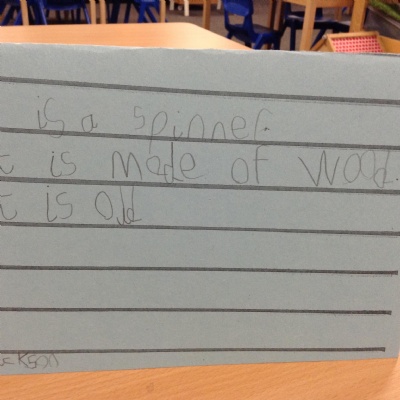 is a spinner.
t is made of wood.
t is old
ckson